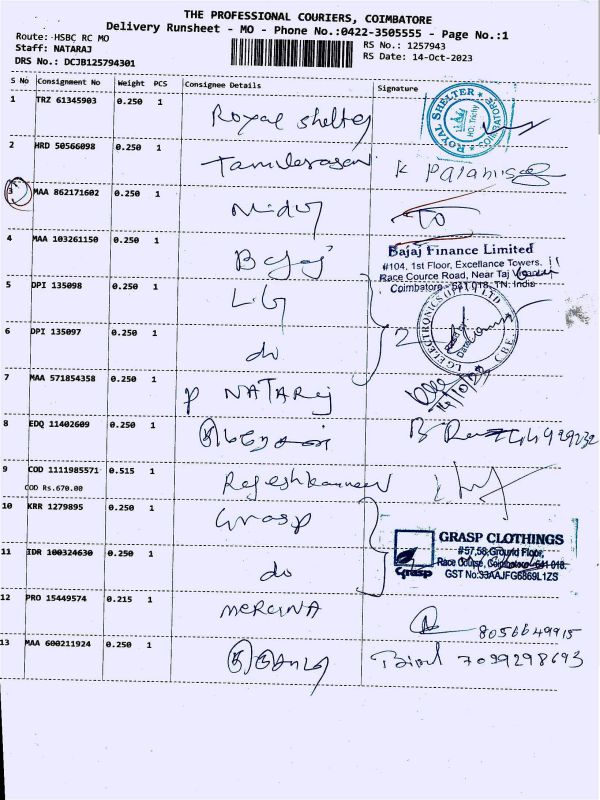 THE PROFESSIONAL COURIERS, COIMBATORE
Delivery Runsheet - MO - Phone No.:0422-3505555 - Page No.:1
Route: -HSBC RC MO
RS No.: 1257943
Staff: NATARAJ
RS Date: 14-Oct-2023
DRS No.: DCJB125794301
S No Consignment No Weight PCS Consignee Details Signature
1 TRZ 61345903 0.250 1 Royal shelter
ROYAL SHELTER HO, Trichy COIMBATORE
2 HRD 50566098 0.250 1 Tamilarasan K
3 MAA 862171602 0.250 1 TO
4 MAA 103261150 0.250 1 Bajaj
Bajaj Finance Limited
#104, 1st Floor, Excellance Towers.
Race Cource Road, Near Taj
Coimbatore - 641 018. TN. India
5 DPI 135098 0.250 1 LG
6 DPI 135097 0.250 1 do 2
LG ELECTRONICS CBE
7 MAA 571854358 0.250 1 P NATARaj
14/10/23
8 EDQ 11402609 0.250 1
9 COD 1111985571 0.515 1 Rajeshkannan
COD Rs.670.00
10 KRR 1279895 0.250 1 Grasp
GRASP CLOTHINGS
#57,58,Ground Floor,
Race Course, Coimbatore-641 018.
Grasp GST No:33AAJFG6869L1ZS
11 IDR 100324630 0.250 1 do
12 PRO 15449574 0.215 1 MERCINA
8056649915
13 MAA 600211924 0.250 1 7099298693